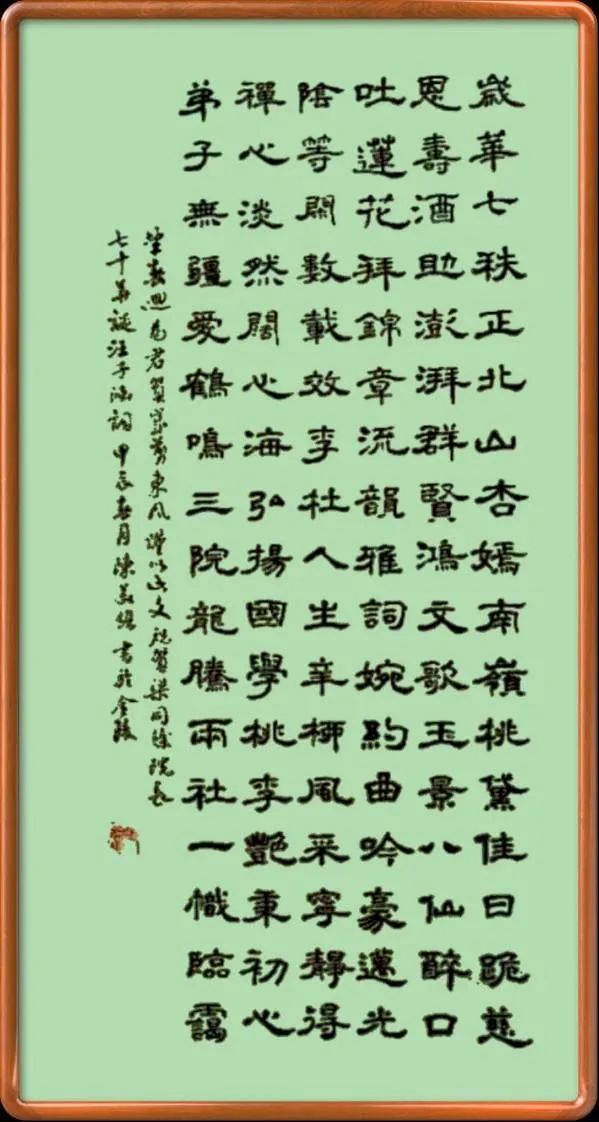 歲華七秩正北山杏嫣南嶺桃黛佳日跪慈
恩壽酒助澎湃群賢鴻文歌玉景八仙醉口
吐蓮花拜錦章流韻雅詞婉約曲吟豪邁光
陰等閑數載效李杜人生辛柳風采寧靜得
禪心淡然闊心海弘揚國學桃李艷秉初心
弟子無疆愛鶴鳴三院龍騰兩社一幟臨靄
望春迴為君賀嵩壽東風謹以此文祝賀梁同院長
七十華誕汪子涵詞甲辰春月陳書於金陵